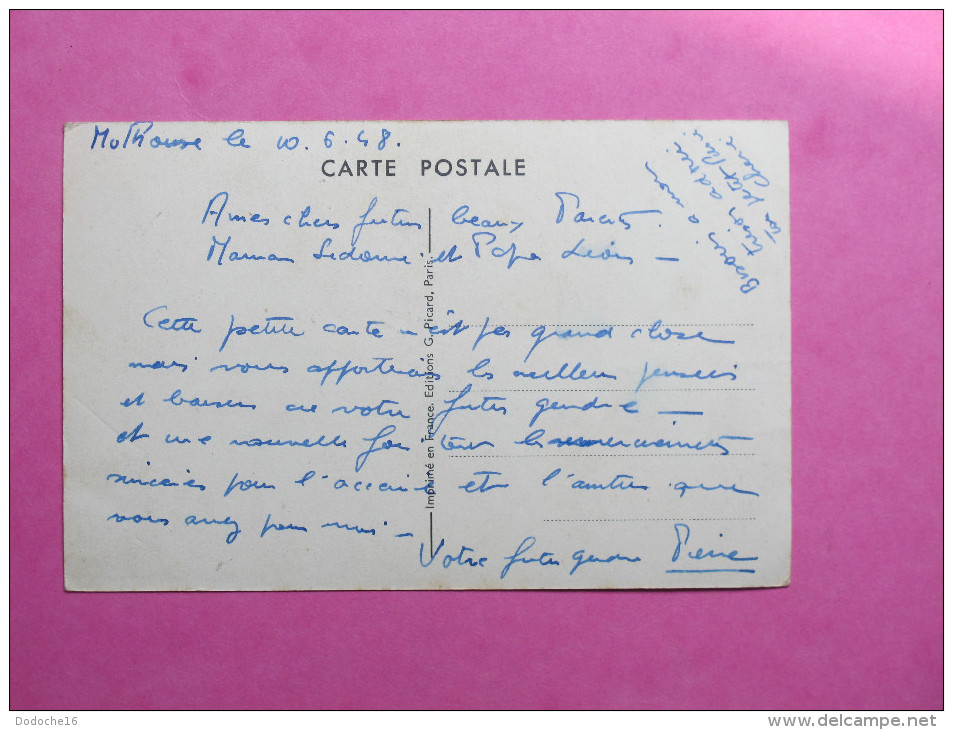 Mulhouse le 10.6.48.
CARTE POSTALE
A mes chers futurs beaux Parents.
Maman et Papa Léon —
Cette petite carte n'est pas grand chose
mais vous apporterais les meilleurs pensées
et baisers de votre futur gendre —
et une nouvelle fois tous les remerciements
sincères pour l'accueil et l'amitié que
vous avez pour moi —
Votre futur gendre Pierre
Baisers à mon
trésor adoré.
Ton petit Pierre
chéri.
Imprimé en France. Editions G. Picard, Paris.
Dodoche16
www.delcampe.net